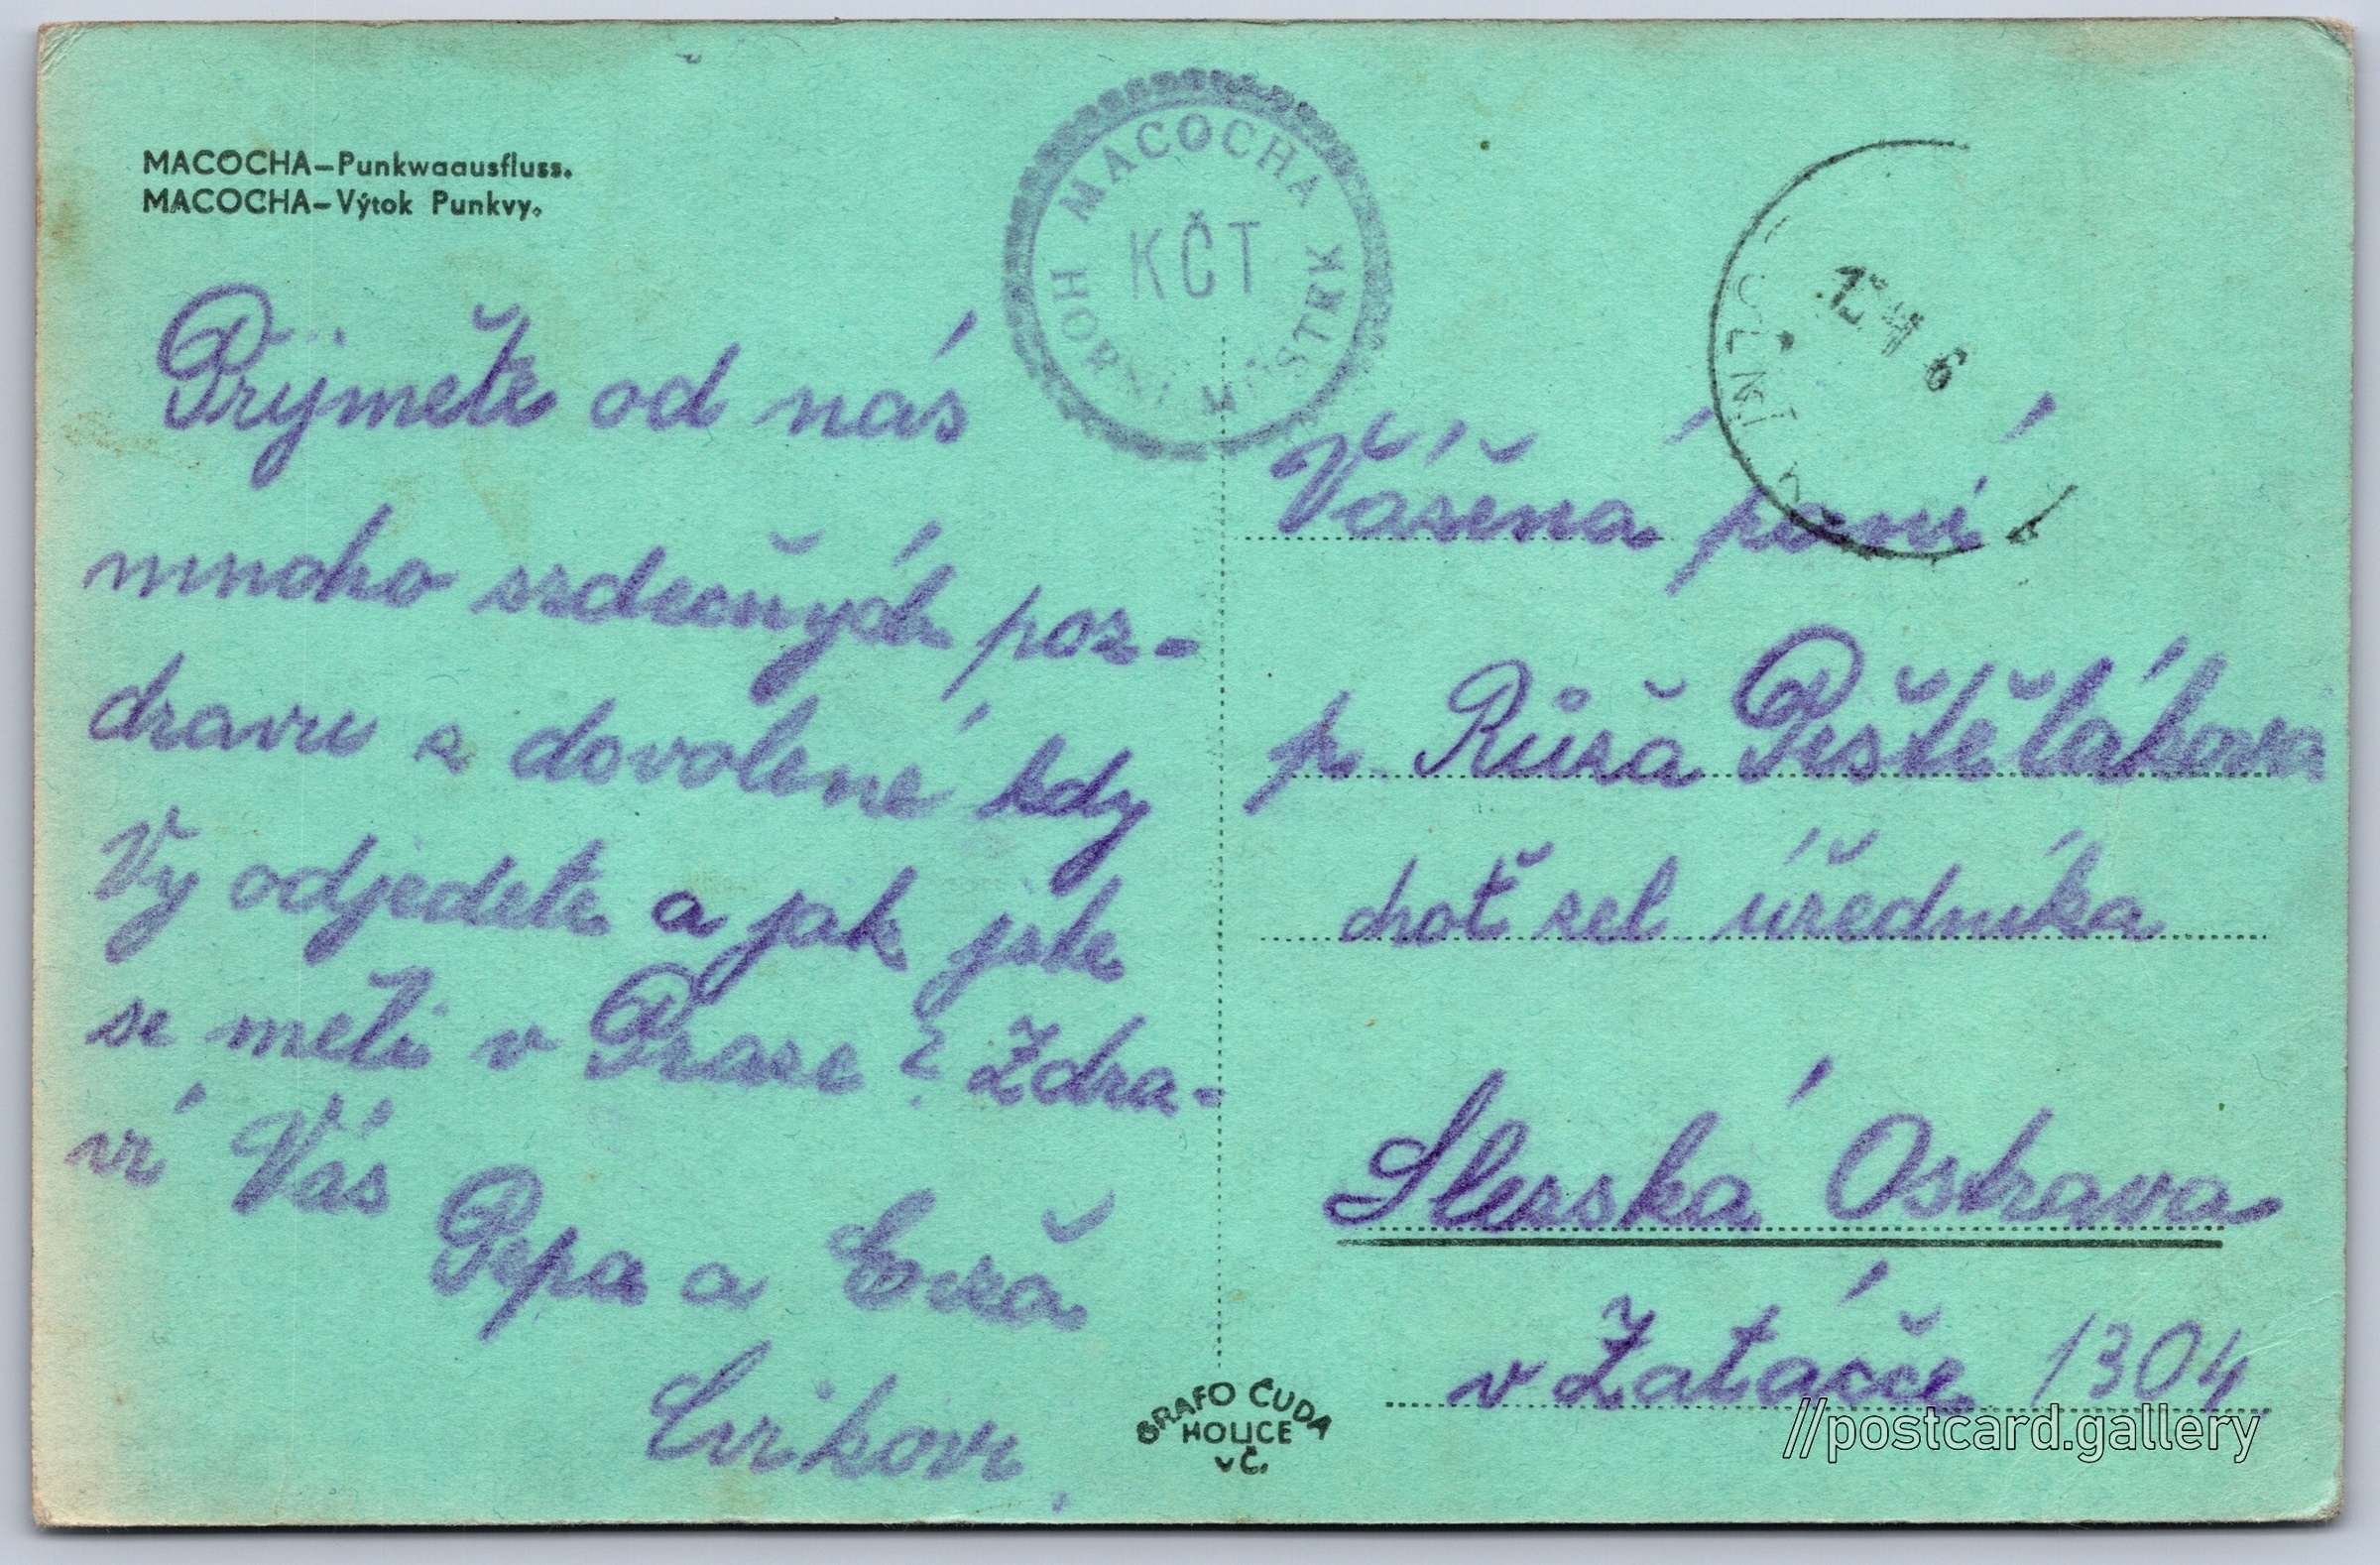 MACOCHA–Punkwaausfluss.
MACOCHA–Výtok Punkvy.
MACOCHA
KČT
HORNÍ MŮSTEK
Prijmětě od nás
mnoho srdečných poz-
dravu z dovolené kdy
Vy odjedete a jak jste
se měli v Praze? Zdra-
ví Vás
Pepa a
Vážená paní
p. Růža Pěštělákova
choť žel úředníka
Slezská Ostrava
v Zatáčce 1304
GRAFO ČUDA
HOLICE
v Č.
//postcard.gallery